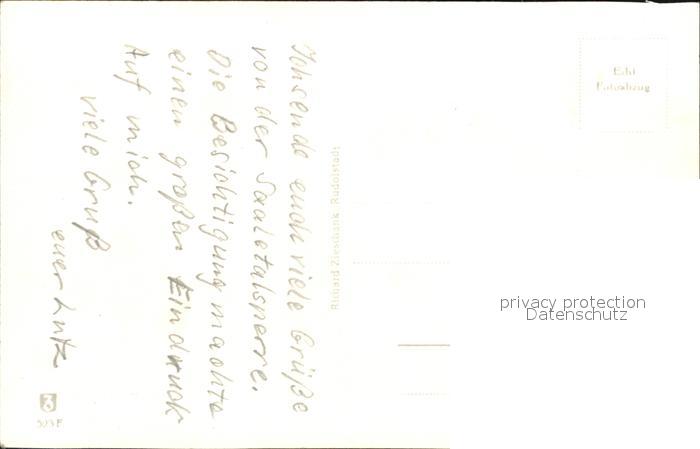 Ichsende euch viele Grüße
von der Saaletalsperre.
Die Besichtigung machte
einen großen Eindruck
Auf mich.
viele Gruß
euer Lutz
Richard Zieschank, Rudolstadt
Echt
Fotoabzug
privacy protection
Datenschutz
593 F